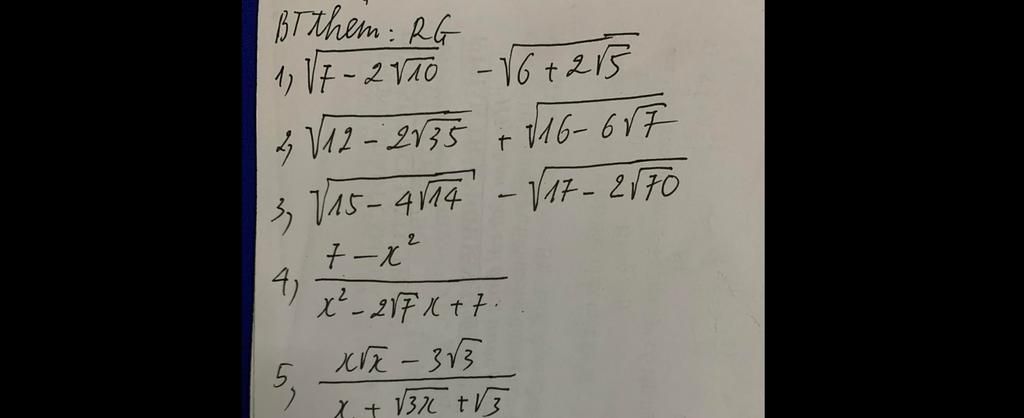 BT thêm: RG
1, √(7 - 2√10) - √(6 + 2√5)
2, √(12 - 2√35) + √(16 - 6√7)
3, √(15 - 4√14) - √(17 - 2√70)
4, (7 - x²)/(x² - 2√7 x + 7)
5, (x√x - 3√3)/(x + √(3x) + √3)